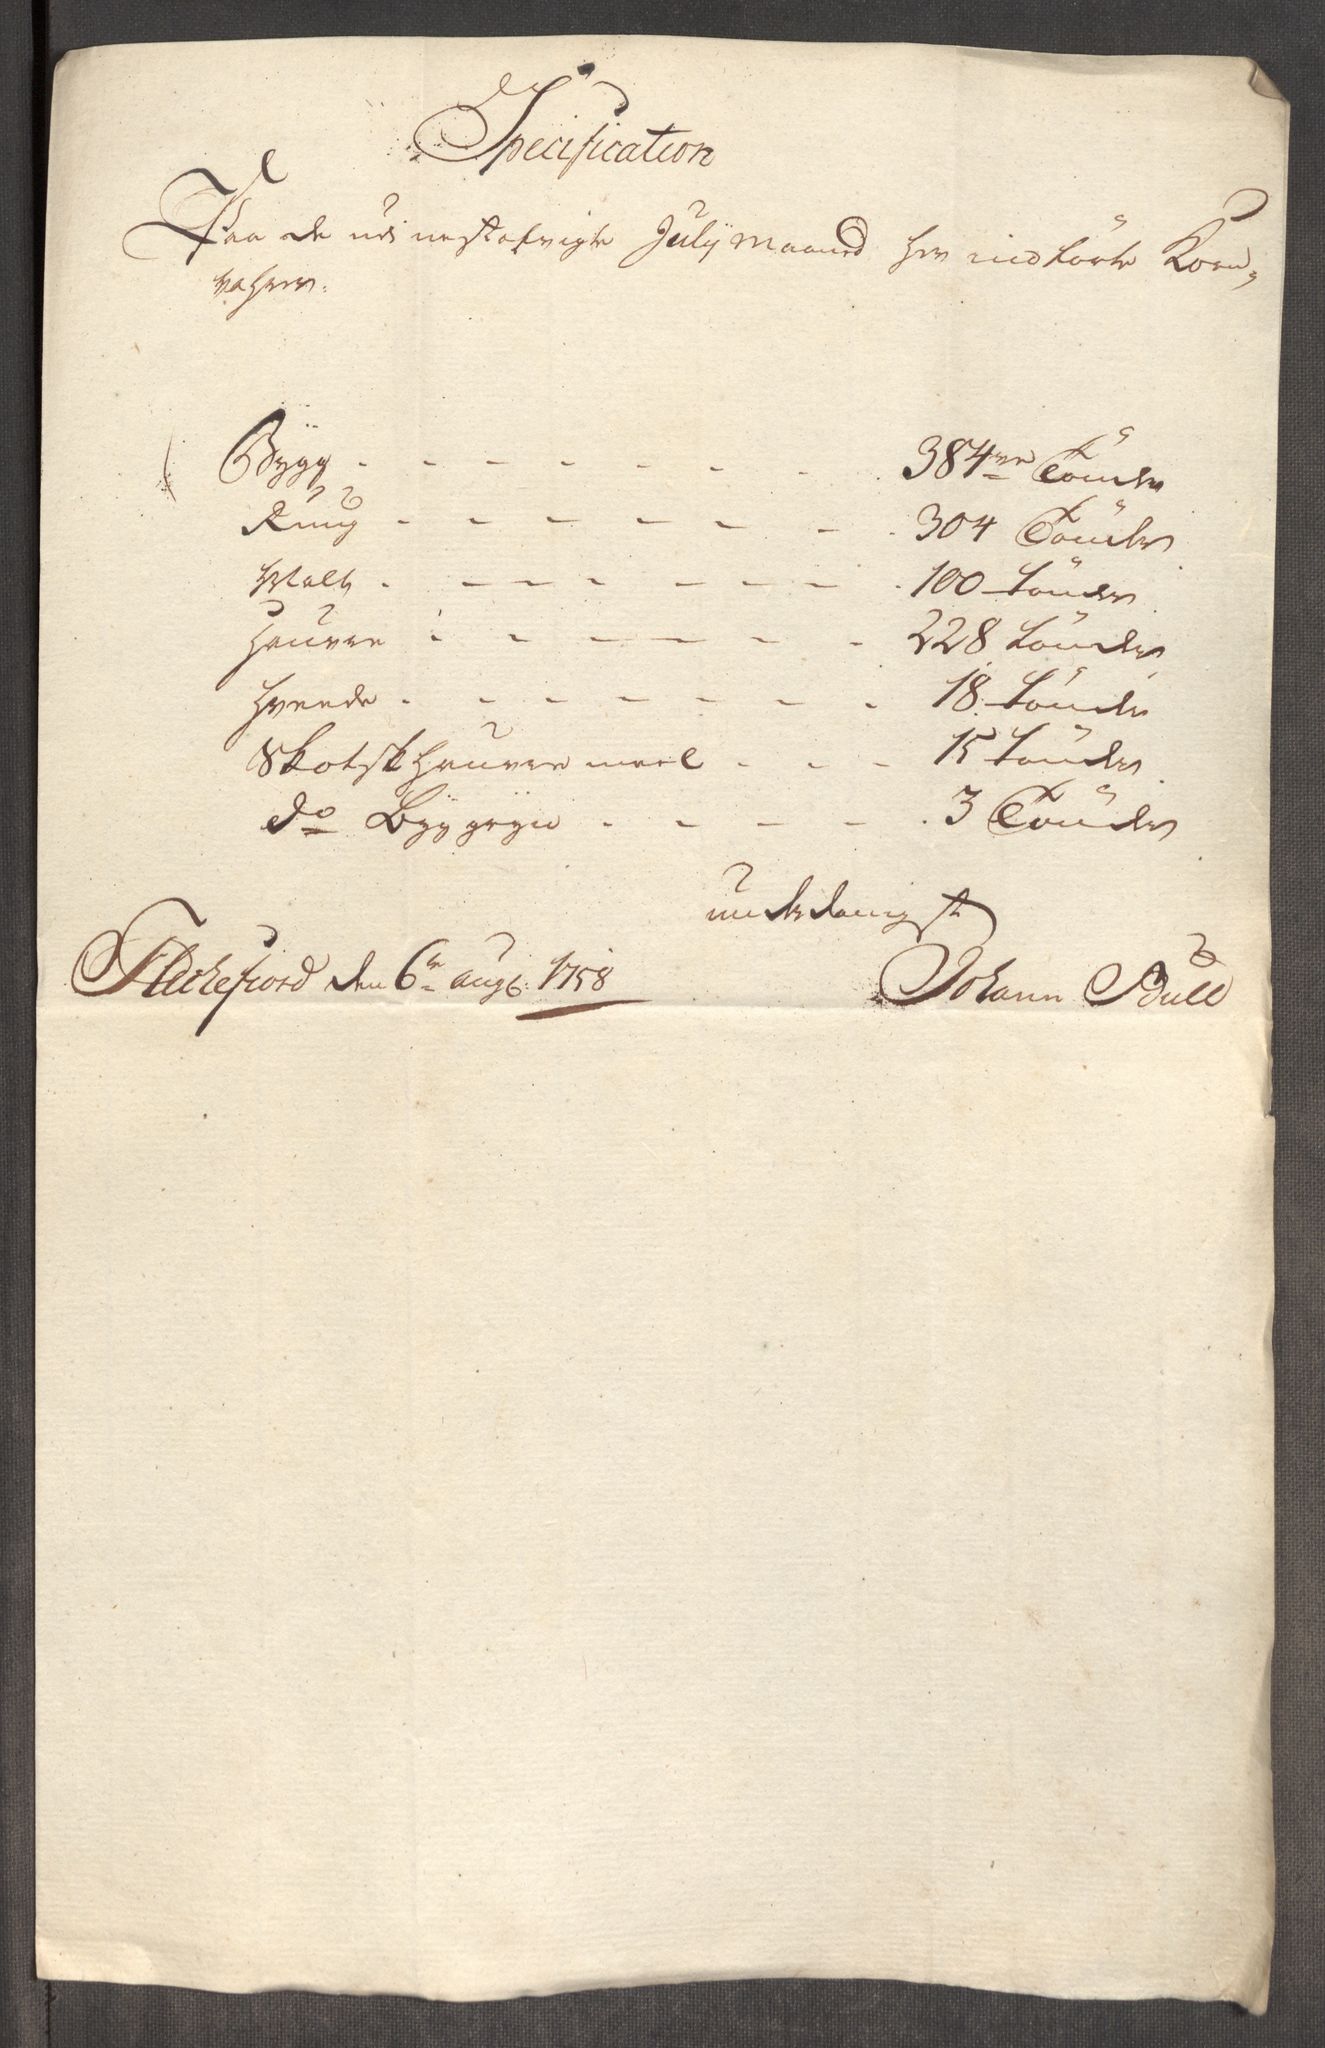 Specification
Paa de udi nestafvigte Julÿ Maaned her indförte Korn,
vahrer.
Bÿgg - - - - - - - 384re Tönder
Rug - - - - - - - 304 Tönder
Malt - - - - - - - 100 tönder
Haure - - - - - - - 228 tönder
Hveede - - - - - - - 18 tönder
Skotsk Haure meel - - - 15 tönder
do Bÿggryn - - - - - 3 Tönder
underdanigst
Fleckefiord den 6te augt: 1758
Johann Bull